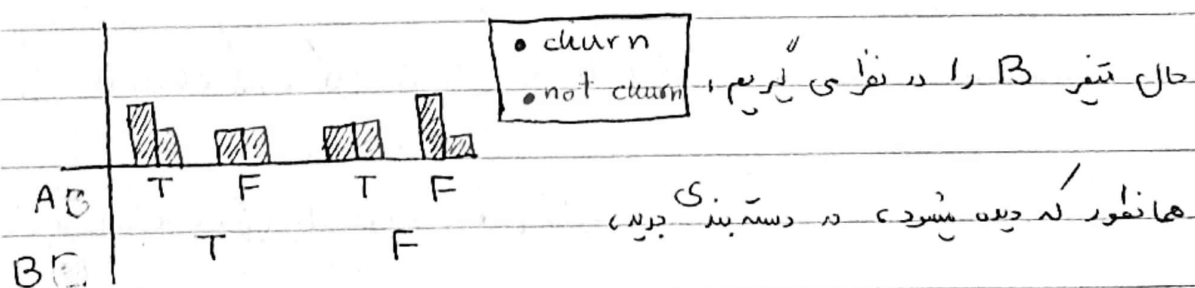 • churn
• not churn
حال متغیر B را در نظر می گیریم،
A T F T F
همانطور که دیده میشود، در دسته بندی جدید،
B T F